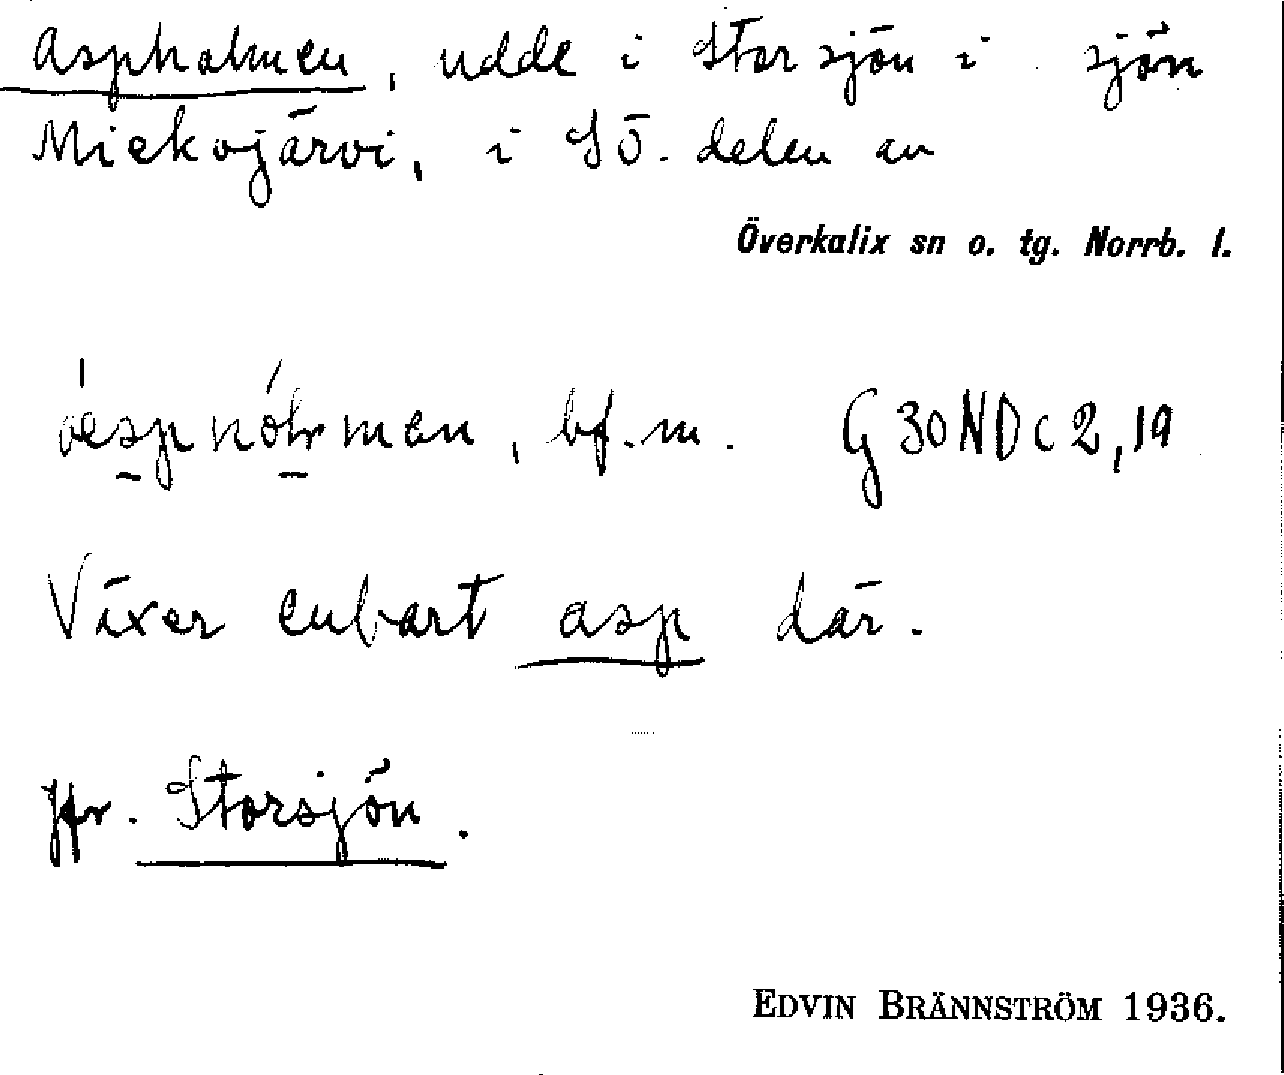 Aspholmen, udde i Storsjön i sjön
Miekojärvi, i SÖ. delen av
Överkalix sn o. tg. Norrb. l.
bf. m. G30NDc2,19
Växer enbart asp där.
Jfr. Storsjön.
EDVIN BRÄNNSTRÖM 1936.